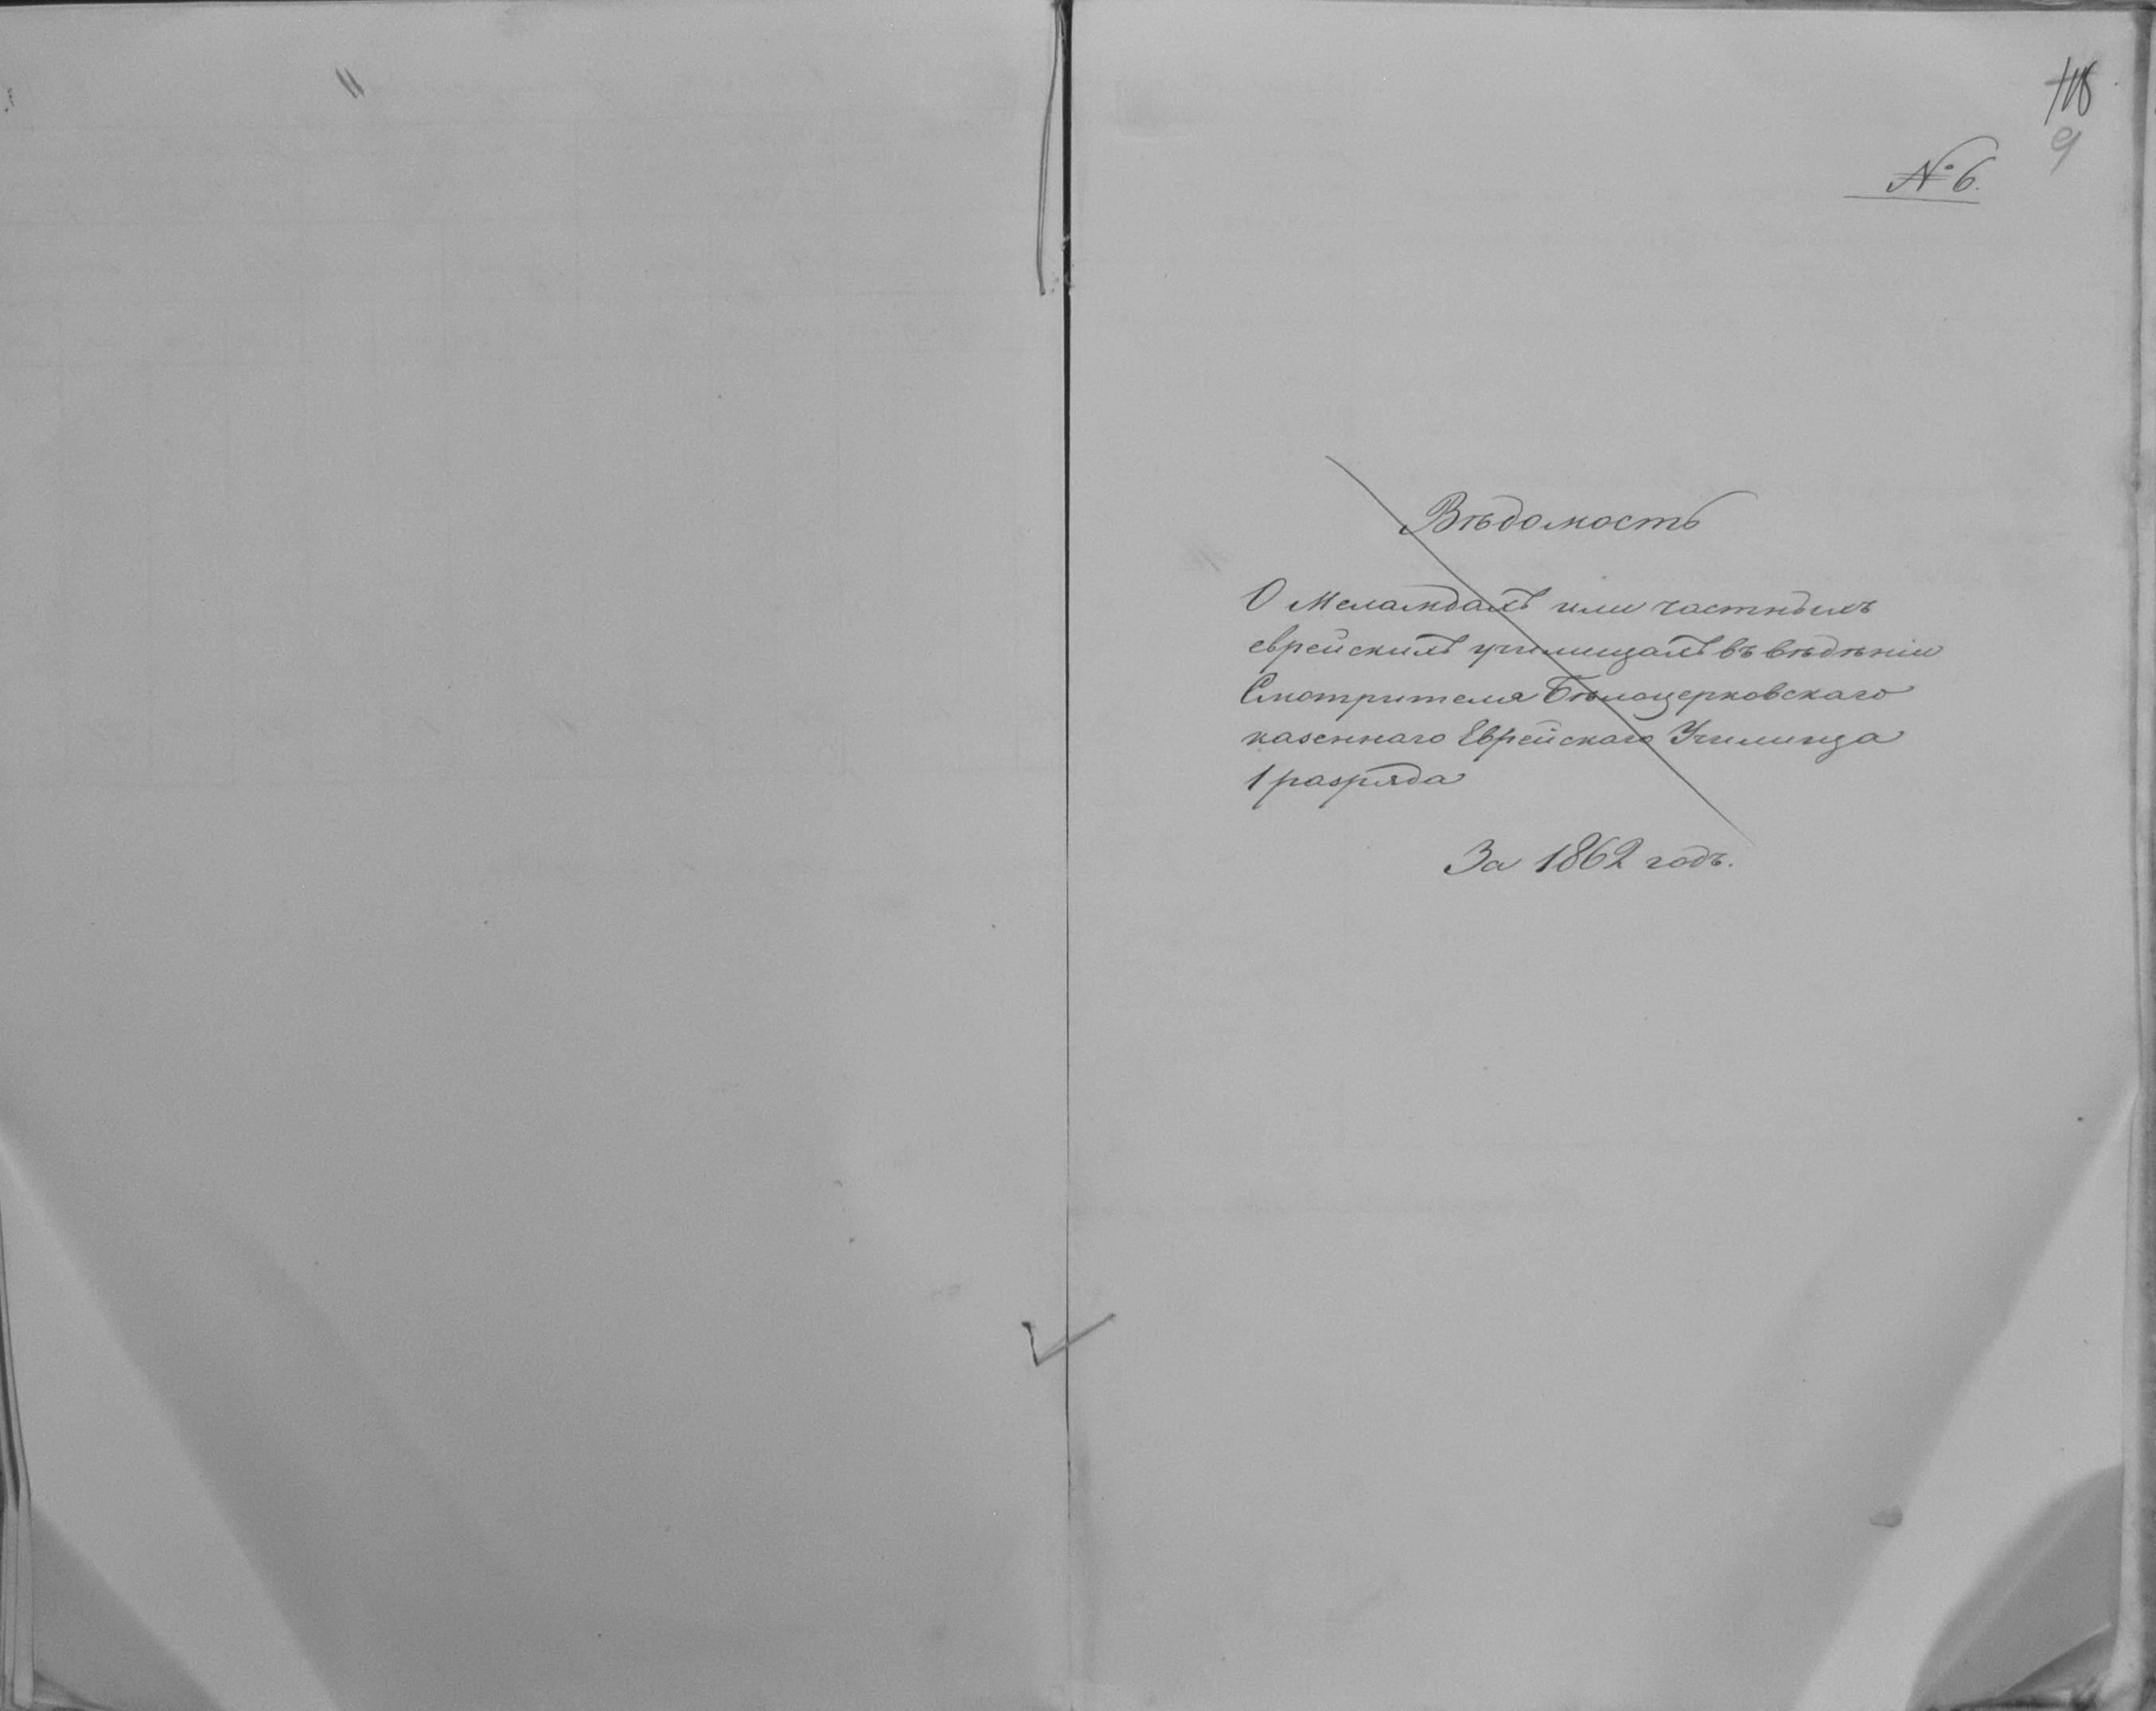 9
№ 6.
Вѣдомость
О Меламдахъ или частныхъ
еврейскихъ училищахъ въ вѣдѣніи
Смотрителя Бѣлоцерковскаго
казеннаго Еврейскаго Училища
1 разряда
За 1862 годъ.